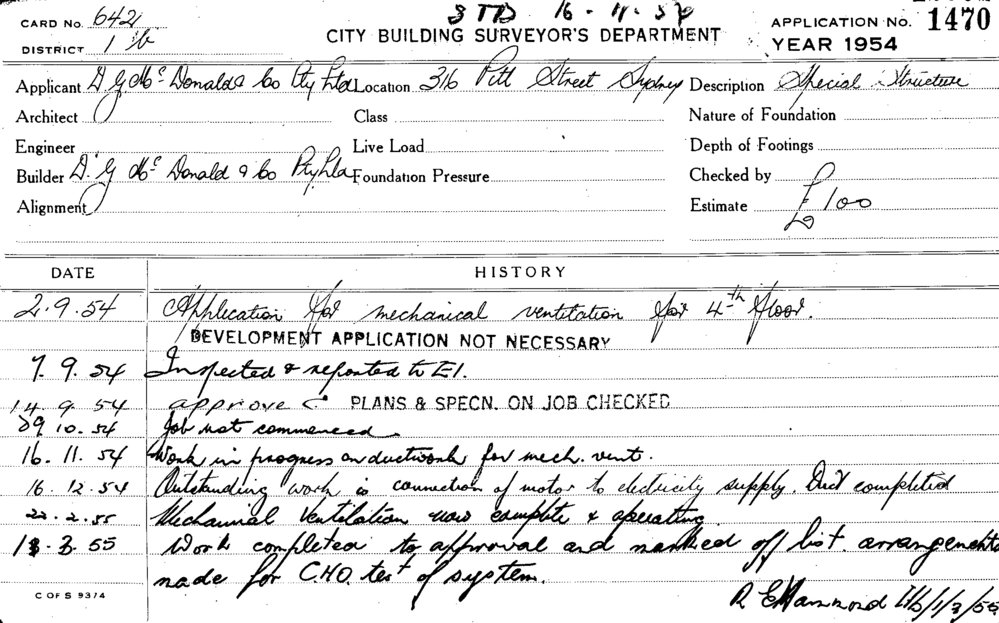 CARD No. 6421
3 TD 16-11-54
APPLICATION No. 1470
DISTRICT 1 b
CITY BUILDING SURVEYOR'S DEPARTMENT
YEAR 1954
Applicant D. G. Mc Donald & Co Pty Ltd Location 316 Pitt Street Sydney Description Special Structure
Architect Class Nature of Foundation
Engineer Live Load Depth of Footings
Builder D. G. Mc Donald & Co Pty Ltd Foundation Pressure Checked by
Alignment Estimate £100
DATE HISTORY
2.9.54 Application for mechanical ventilation for 4th floor.
DEVELOPMENT APPLICATION NOT NECESSARY
7.9.54 Inspected & reported to E1.
14.9.54 approved PLANS & SPECN. ON JOB CHECKED
29 10.54 Job not commenced
16.11.54 Work in progress on ductwork for mech. vent.
16.12.54 Outstanding work is connection of motor to electricity supply. Duct completed
22.2.55 Mechanical Ventilation now complete & operating
1.3.55 Work completed to approval and marked off list. arrangements
made for C.H.O. test of system.
C OF S 93/4
R E Hammond 1/3/55